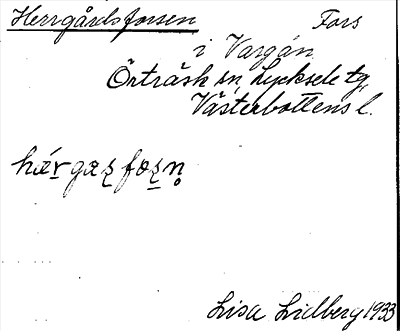 Herrgårdsforsen Fors
i Vargån
Örträsk sn, Lycksele tg,
Västerbottens l.
Lisa Lidberg 1933